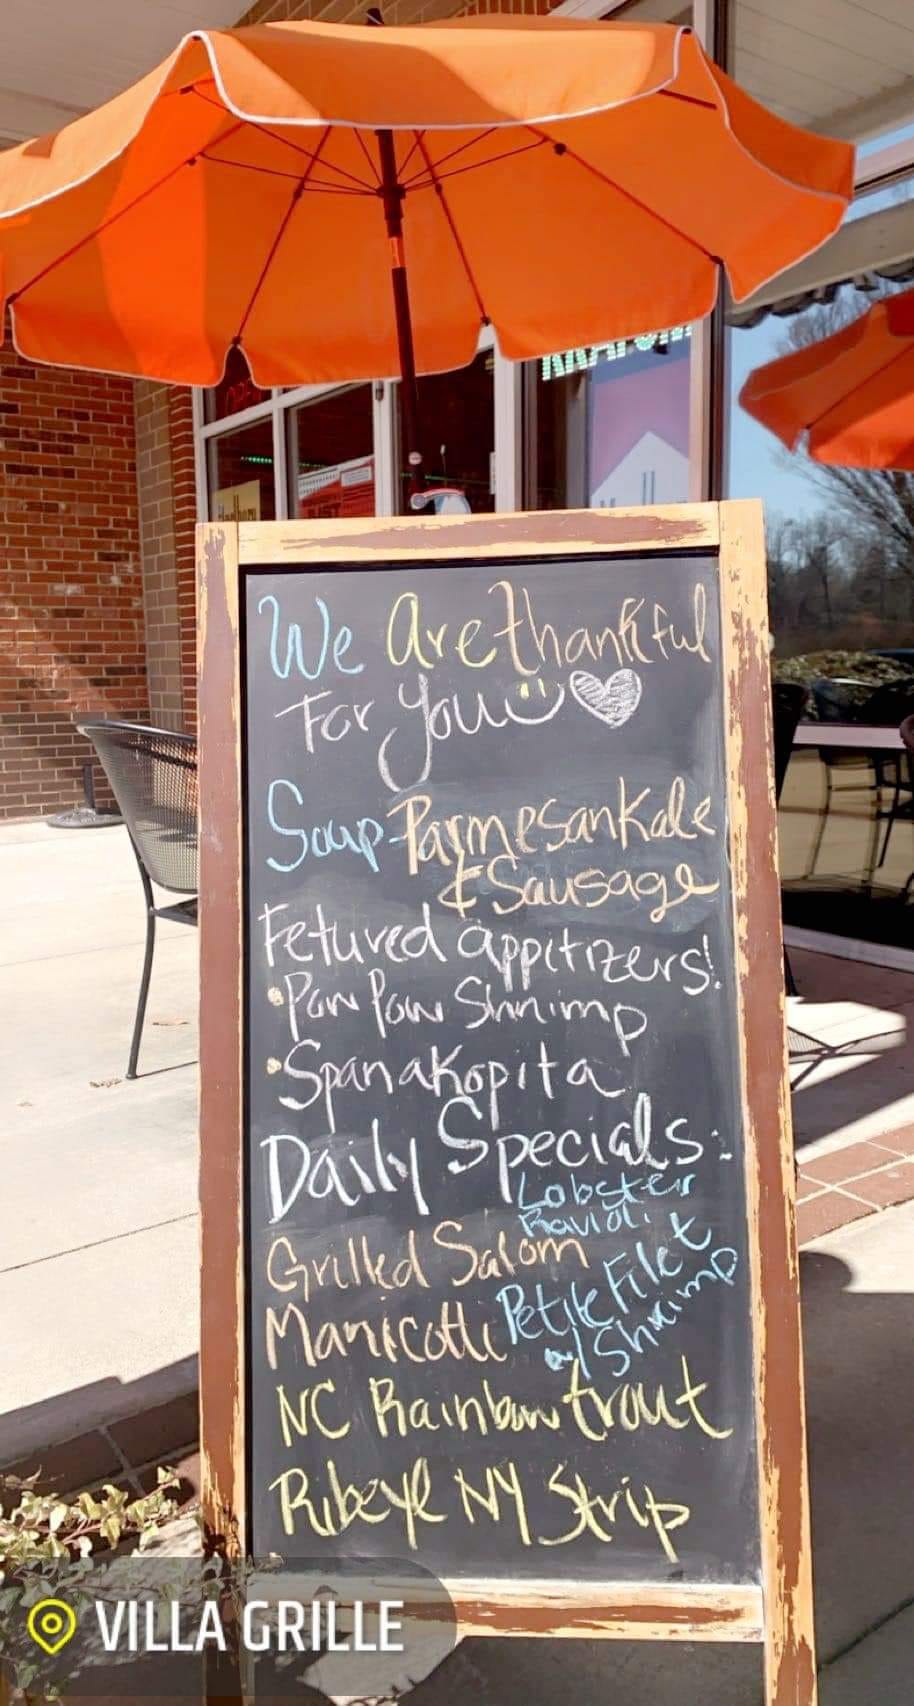 We Are thankful
For you
Soup - Parmesan Kale
& Sausage
Fetured appitizers!
• Pow Pow Shrimp
• Spanakopita
Daily Specials:
Lobster
Ravioli
Grilled Salom
Petite Filet
w/ Shrimp
Manicotti
NC Rainbow trout
Ribeye NY Strip
VILLA GRILLE